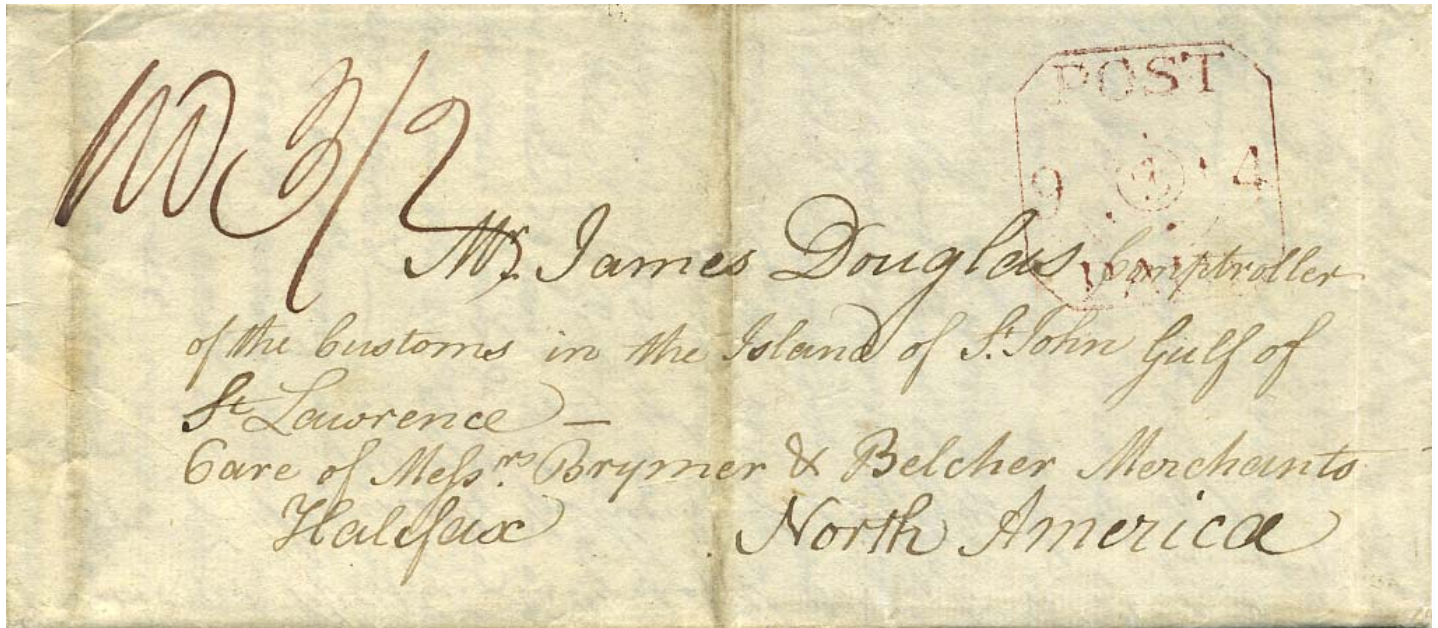 3/2
POST
9 4
Mr. James Douglas Comptroller
of the Customs in the Island of St. John Gulf of
St Lawrence —
Care of Messrs. Brymer & Belcher Merchants
Halifax North America